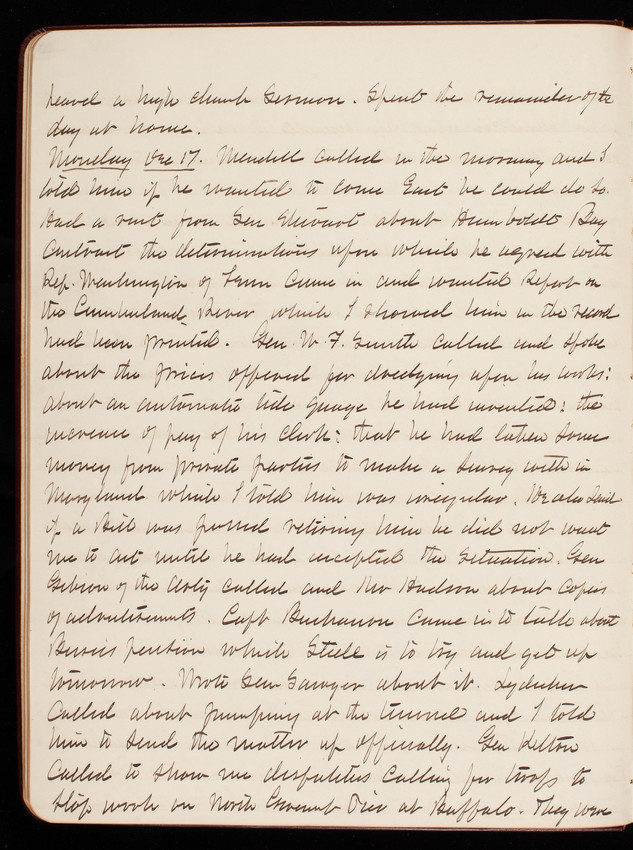 heard a high church sermon. Spent the remainder of the
day at home.
Monday Dec 17. Mendell called in the morning and I
told him if he wanted to come East he could do so.
Had a visit from Gen Stewart about Humboldt Bay
Contract the determinations upon which he agreed with
Rep. Washington of Tenn came in and wanted Report on
the Cumberland River, which I showed him in the record
had been printed. Gen W. F. Smith called and spoke
about the prices offered for dredging upon his works:
about an automatic tide gauge he had invented: the
increase of pay of his clerk: that he had taken some
money from private parties to make a survey with in
Maryland which I told him was irregular. He also said
if a Bill was passed retiring him he did not want
me to act until he had accepted the situation. Gen
Gibson of the Arty called and Mr Hudson about copies
of advertisements. Capt Buchanan came in to talk about
pension which Steele is to try and get up
tomorrow. Wrote Gen Sawyer about it. Lydecker
called about pumping at the tunnel and I told
him to send the matter up officially. Gen Kelton
called to show me dispatches calling for troops to
stop work on North Pier at Buffalo. They were